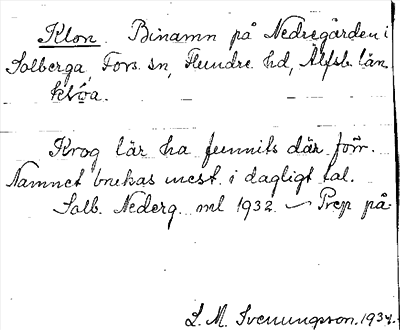 Klon. Binamn på Nedregården i
Solberga, Fors. sn, Flundre hd, Älfsb. län.
klóa.
Krog lär ha funnits där förr.
Namnet brukas mest i dagligt tal.
Solb. Nederg. ml 1932 — Prep på.
L. M. Svenungsson. 1934.